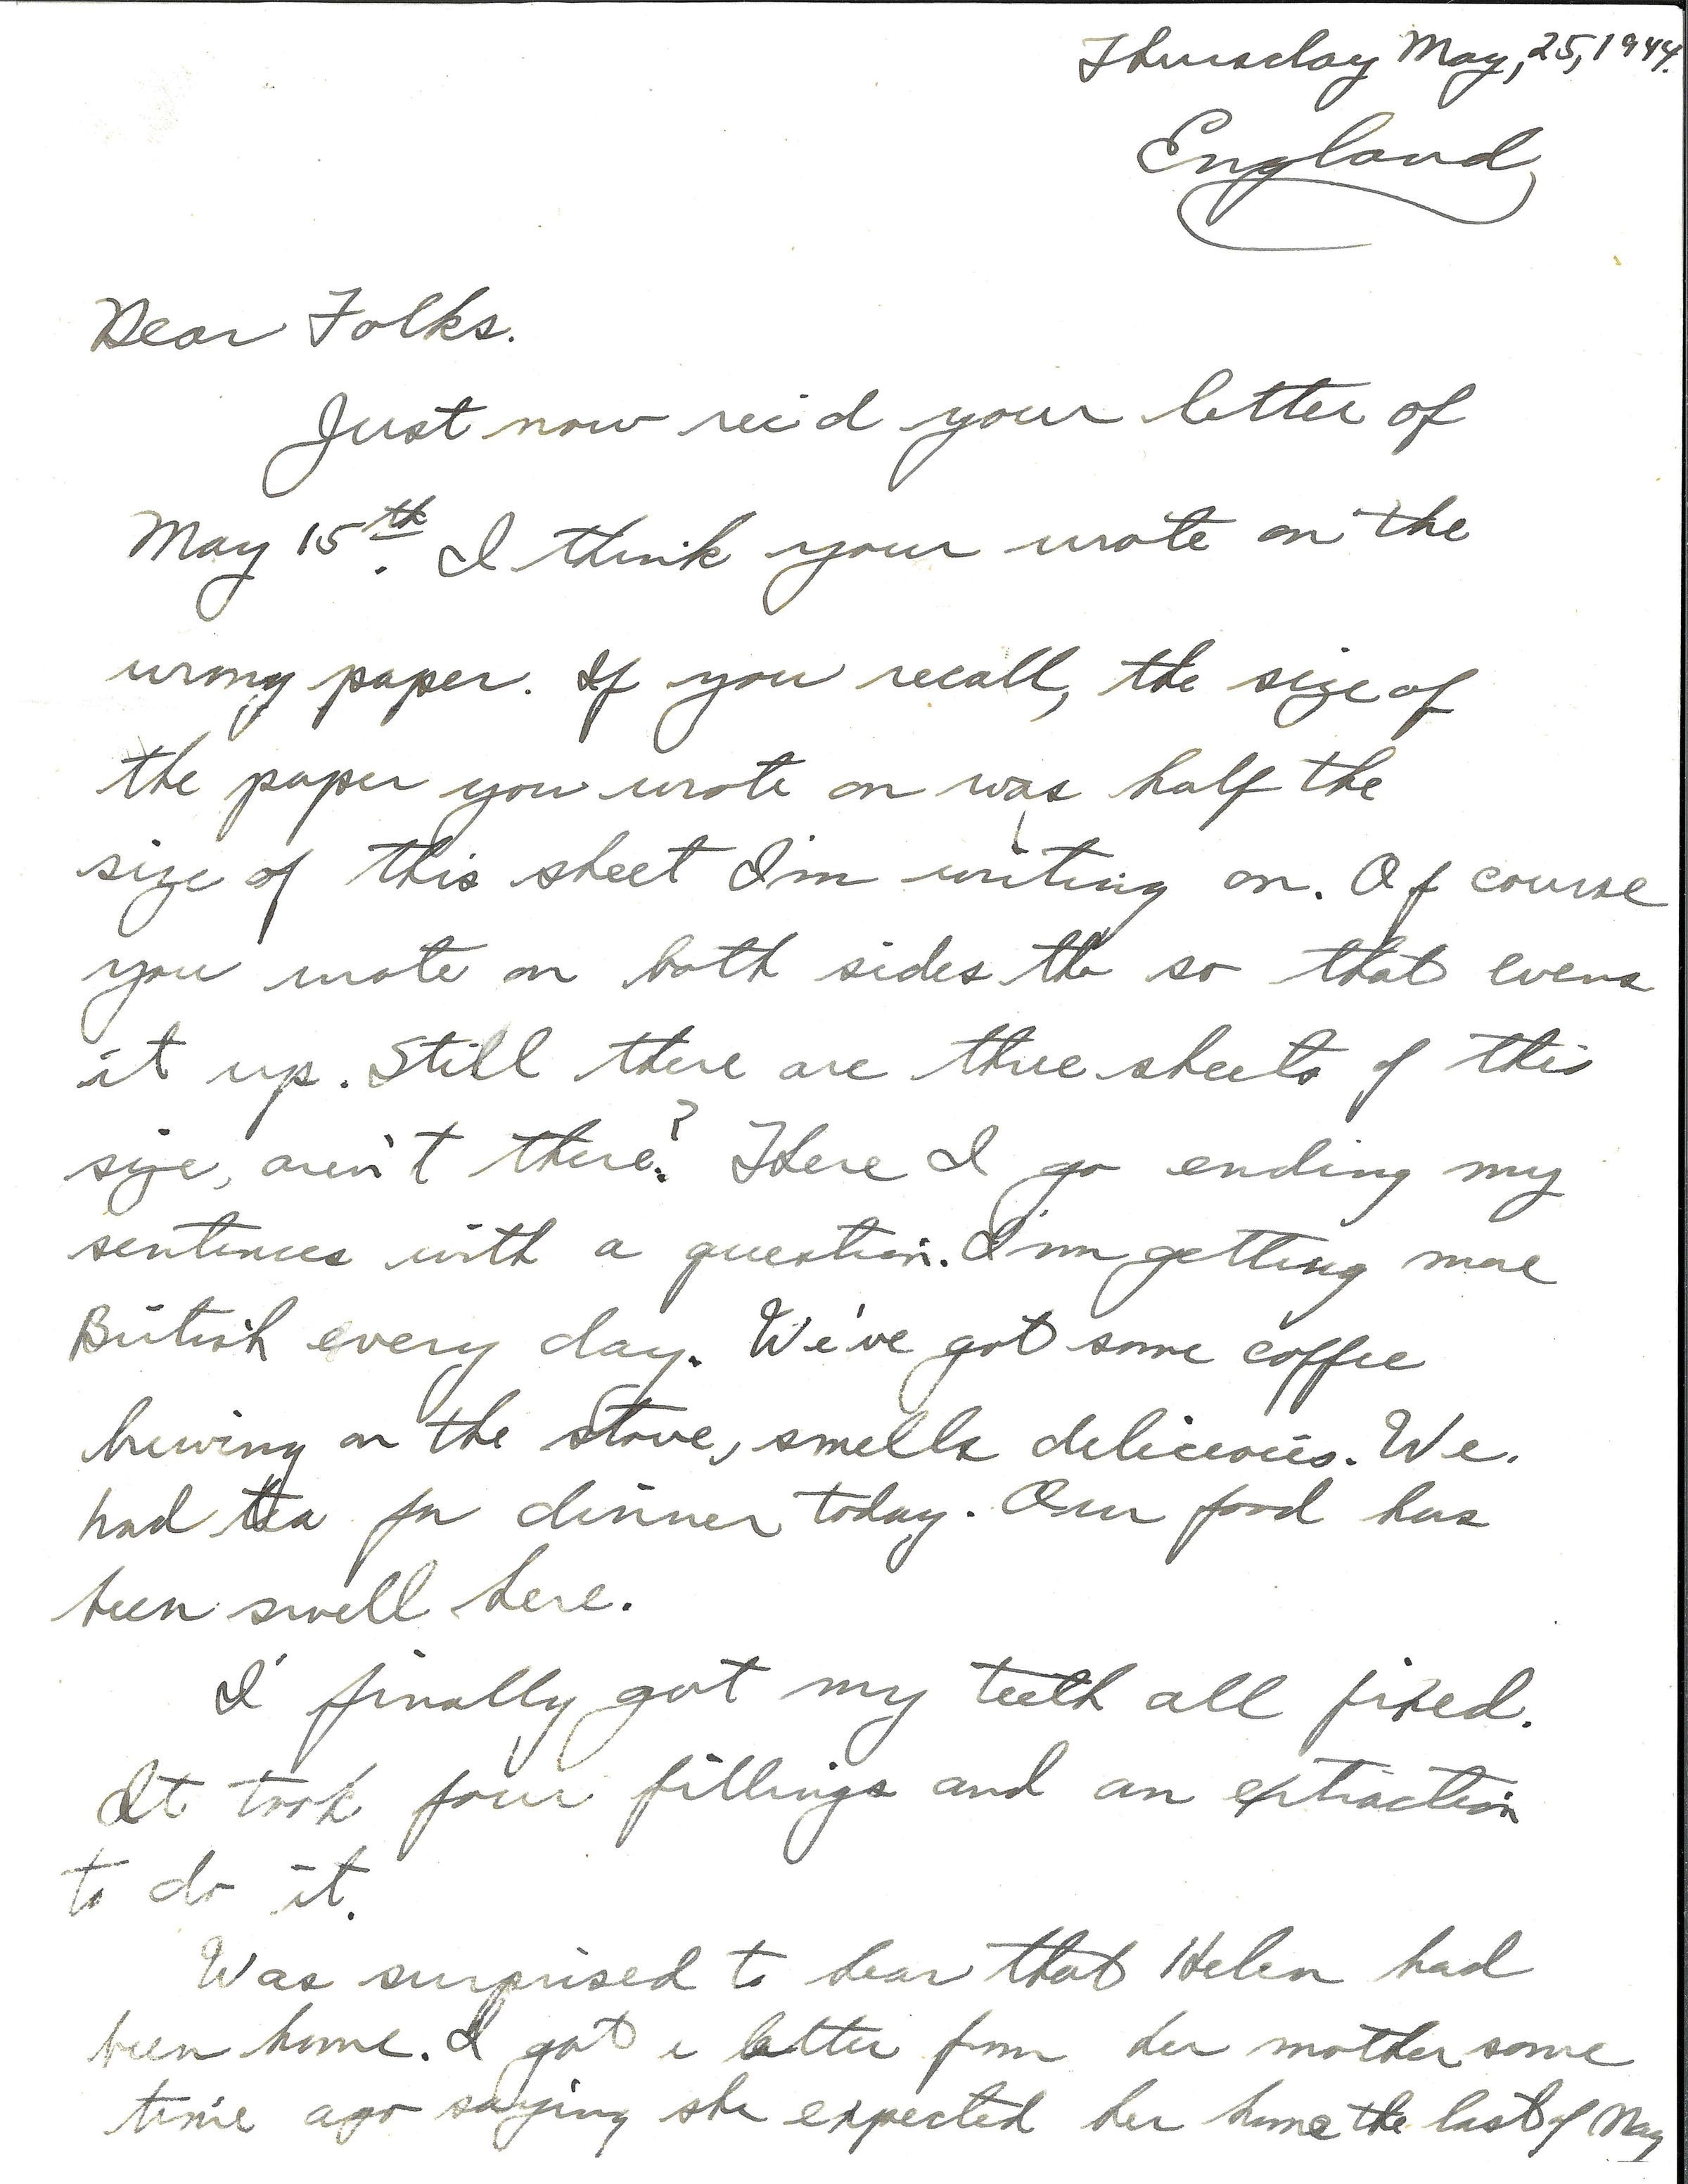 Thursday May, 25, 1944.
England
Dear Folks.
Just now rec'd your letter of
May 15th. I think your wrote on the
wrong paper. If you recall, the size of
the paper you wrote on was half the
size of this sheet I'm writing on. Of course
you wrote on both sides th so that evens
it up. Still there are three sheets of this
size, aren't there? There I go ending my
sentences with a question. I'm getting more
British every day. We've got some coffee
brewing on the stove, smells delicious. We
had tea for dinner today. Our food has
been swell here.
I finally got my teeth all fixed.
It took four fillings and an extraction
to do it.
Was surprised to hear that Helen had
been home. I got a letter from her mother some
time ago saying she expected her home the last of May